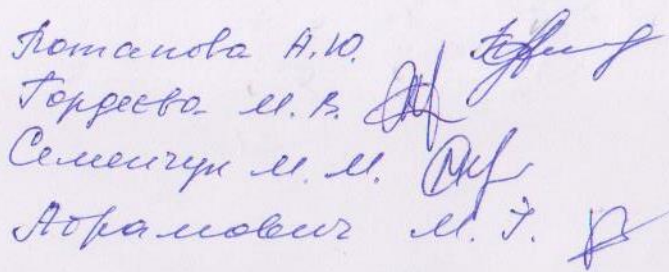 Потапова А.Ю.
Гордеева М.В.
Семенчук М.М.
Абрамович М.Г.